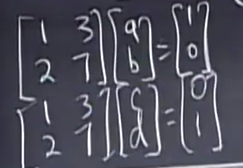 [1 3; 2 7] [a; b] = [1; 0]
[1 3; 2 7] [c; d] = [0; 1]